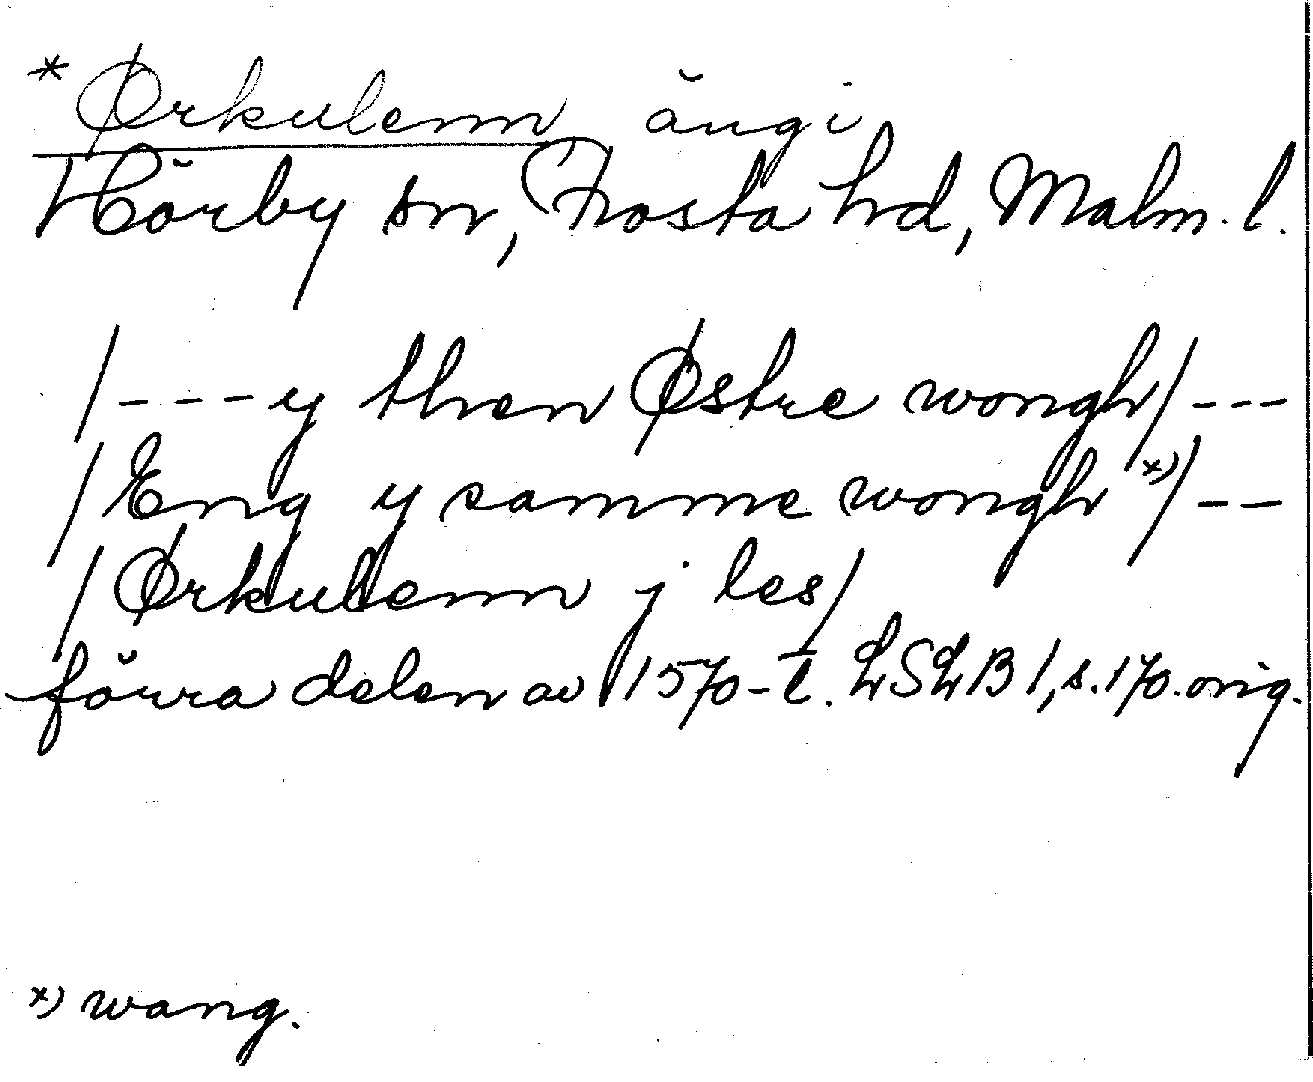 * Ørkulenn, ängi
Hörby sn, Frosta hd, Malm. l.
/---y then Østre wongh/---
/Eng y samme wongh x)/--
/Ørkulenn j les/
förra delen av 1570-t. LSLB 1, s. 170. orig.
x) wang.